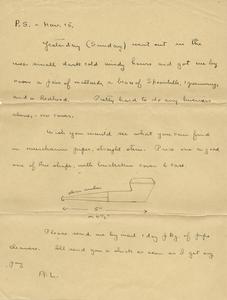 P.S. - Nov. 15.
Yesterday (Sunday) went out in the
wee small dark cold windy hours and got me by
noon a pair of mallards, a brace of Spoonbills, 1 greenwing,
and a Redhead. Pretty hard to do any business
alone, - no cover.
Wish you would see what you can find
in meerschaum pipes, straight stem. Price on a good
one of this shape, with
5"
or 4½"
Please send me by mail 1 doz pkg. of pipe
cleaners. Will send you a check as soon as I get my
pay
A.L.